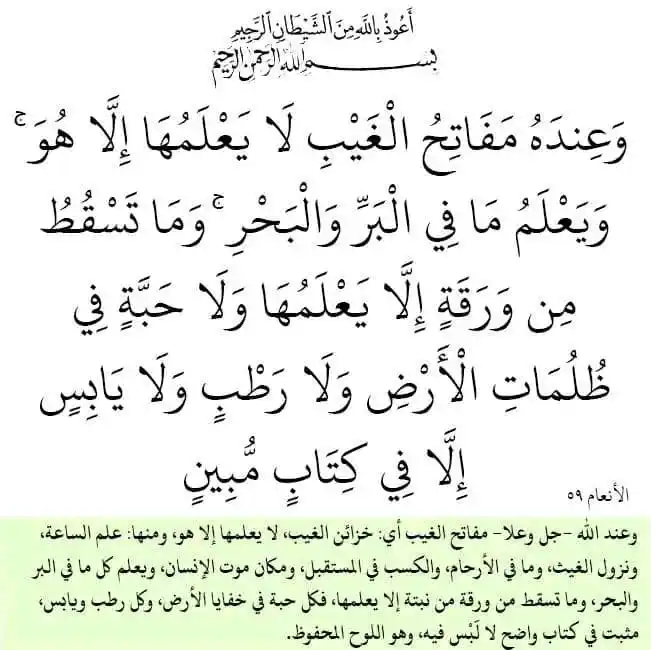 أَعُوذُ بِاللَّهِ مِنَ الشَّيْطَانِ الرَّجِيمِ
بِسْمِ اللَّهِ الرَّحْمَٰنِ الرَّحِيمِ
وَعِندَهُ مَفَاتِحُ الْغَيْبِ لَا يَعْلَمُهَا إِلَّا هُوَ ۚ
وَيَعْلَمُ مَا فِي الْبَرِّ وَالْبَحْرِ ۚ وَمَا تَسْقُطُ
مِن وَرَقَةٍ إِلَّا يَعْلَمُهَا وَلَا حَبَّةٍ فِي
ظُلُمَاتِ الْأَرْضِ وَلَا رَطْبٍ وَلَا يَابِسٍ
إِلَّا فِي كِتَابٍ مُّبِينٍ
الأنعام ٥٩
وعند الله -جل وعلا- مفاتح الغيب أي: خزائن الغيب، لا يعلمها إلا هو، ومنها: علم الساعة،
ونزول الغيث، وما في الأرحام، والكسب في المستقبل، ومكان موت الإنسان، ويعلم كل ما في البر
والبحر، وما تسقط من ورقة من نبتة إلا يعلمها، فكل حبة في خفايا الأرض، وكل رطب ويابس،
مثبت في كتاب واضح لا لَبْس فيه، وهو اللوح المحفوظ.